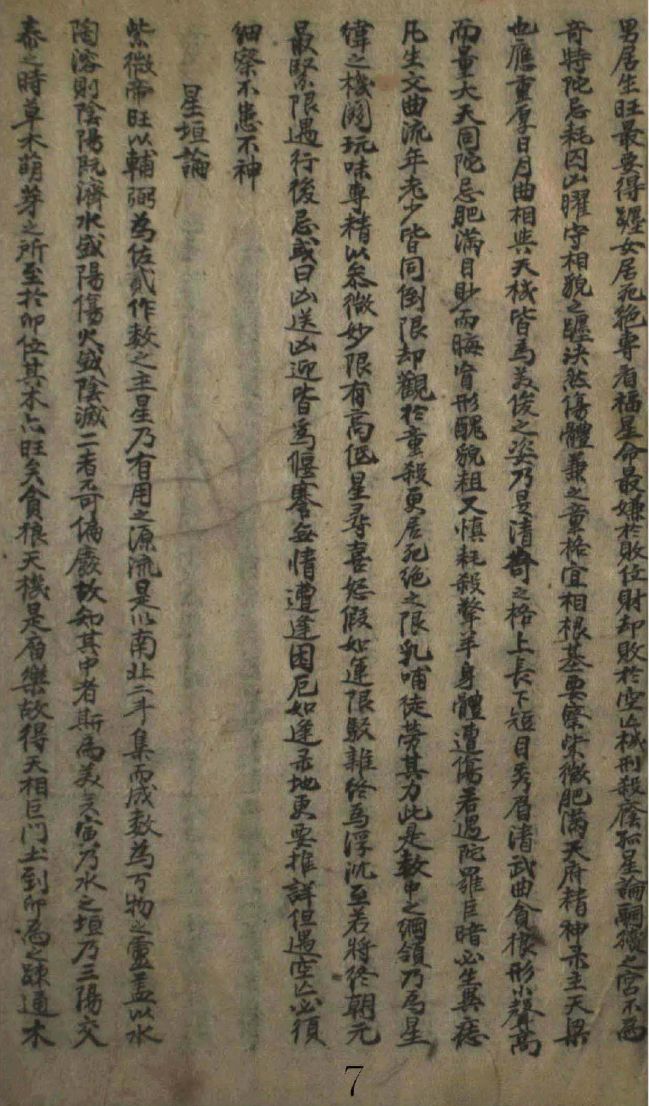 男居生旺最要得躔女居死絕專看福星命最嫌於敗位財却敗於空亡機刑殺蔭孤星論嗣徵之宮不為
奇特陀忌耗囚凶曜守相貌之躔決然傷體兼之童格宜相根基要察紫微肥滿天府精神彔主天梁
也應重厚日月曲相與天機皆為美俊之姿乃是清奇之格上長下短目秀眉清武曲貪狼形小聲高
而量大天同陀忌肥滿目眇而晦宿形醜貌粗又慎耗殺聲羊身體遭傷若遇陀羅巨暗必生異痣
凡生文曲流年老少皆同倒限却觀於童殺更居死絕之限乳哺徒勞其力此是数中之綱領乃為星
緯之機關玩味專精以參微妙限有高低星尋喜怒假如運限駁雜終為浮沉至若將終朝元
最緊限遇行後忌或曰凶送凶迎皆為偃蹇無情遭逢困厄如逢彔地更要推詳但遇空亡必須
細察不患不神
星垣論
紫微帝旺以輔弼為佐貳作数之主星乃有用之源流是以南北二斗集而成数為万物之靈盖以水
陶溶則陰陽既濟水盛陽傷火盛陰滅二者不可偏廢故知其中者斯為美矣寅乃水之垣乃三陽交
泰之時草木萌芽之所至於卯位其木亦旺矣貪狼天機是廟樂故得天相巨門土到卯為之疎通木
7